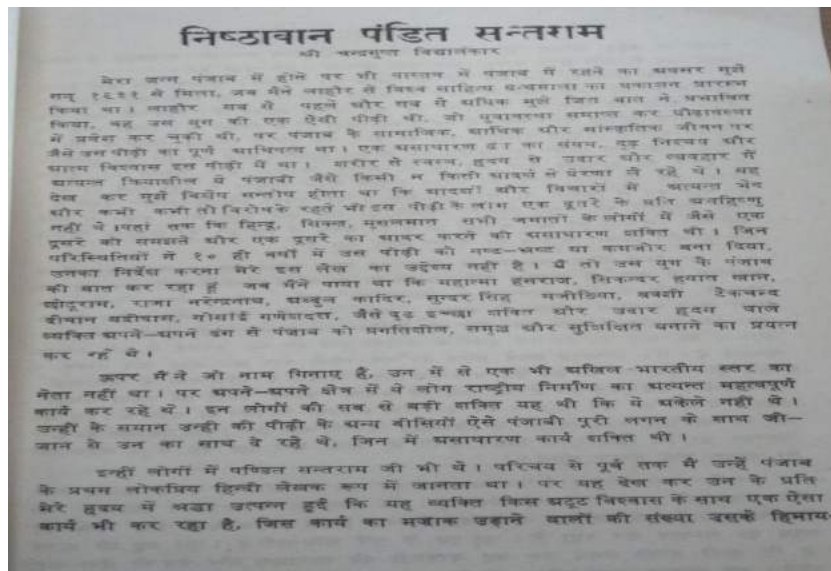 निष्ठावान पंडित सन्तराम
श्री चन्द्रगुप्त विद्यालंकार
मेरा जन्म पंजाब में होने पर भी वास्तव में पंजाब में रहने का अवसर मुझे
सन् १९२९ से मिला, जब मैंने लाहौर से विश्व साहित्य ग्रन्थमाला का प्रकाशन प्रारम्भ
किया था । लाहौर सब से पहले और सब से अधिक मुझे जिस बात ने प्रभावित
किया, वह उस युग की एक ऐसी पीढ़ी थी, जो युवावस्था समाप्त कर प्रौढ़ावस्था
में प्रवेश कर चुकी थी, पर पंजाब के सामाजिक, आर्थिक और सांस्कृतिक जीवन पर
जैसे उस पीढ़ी का पूर्ण आधिपत्य था । एक असाधारण ढंग का संयम, दृढ़ निश्चय और
आत्म विश्वास इस पीढ़ी में था । शरीर से स्वस्थ, हृदय से उदार और व्यवहार में
अत्यन्त क्रियाशील ये पंजाबी जैसे किसी न किसी आदर्श से प्रेरणा ले रहे थे । यह
देख कर मुझे विशेष सन्तोष होता था कि आदर्शों और विचारों में अत्यन्त भेद
और कभी कभी तो विरोध के रहते भी इस पीढ़ी के लोग एक दूसरे के प्रति असहिष्णु
नहीं थे ।यहां तक कि हिन्दू, सिक्ख, मुसलमान सभी जमातों के लोगों में जैसे एक
दूसरे को समझने और एक दूसरे का आदर करने की असाधारण शक्ति थी । जिन
परिस्थितियों ने १० ही वर्षों में उस पीढ़ी को नष्ट-भ्रष्ट या कमजोर बना दिया,
उनका निर्देश करना मेरे इस लेख का उद्देश्य नहीं है । मैं तो उस युग के पंजाब
की बात कर रहा हूँ जब मैंने पाया था कि महात्मा हंसराज, सिकन्दर हयात खान,
छोटूराम, राजा नरेन्द्रनाथ, अब्दुल कादिर, सुन्दर सिंह मजीठिया, बक्शी टेकचन्द
दीवान बद्रीदास, गोसाईं गणेशदत्त, जैसे दृढ़ इच्छा शक्ति और उदार हृदय वाले
व्यक्ति अपने-अपने ढंग से पंजाब को प्रगतिशील, समृद्ध और सुशिक्षित बनाने का प्रयत्न
कर रहे थे ।
ऊपर मैं ने जो नाम गिनाए हैं, उन में से एक भी अखिल भारतीय स्तर का
नेता नहीं था । पर अपने-अपने क्षेत्र में ये लोग राष्ट्रीय निर्माण का अत्यन्त महत्वपूर्ण
कार्य कर रहे थे । इन लोगों की सब से बड़ी शक्ति यह थी कि ये अकेले नहीं थे ।
उन्हीं के समान उन्हीं की पीढ़ी के अन्य बीसियों ऐसे पंजाबी पूरी लगन के साथ जी-
जान से उन का साथ दे रहे थे, जिन में असाधारण कार्य शक्ति थी ।
इन्हीं लोगों में पण्डित सन्तराम जी भी थे । परिचय से पूर्व तक मैं उन्हें पंजाब
के प्रथम लोकप्रिय हिन्दी लेखक रूप में जानता था । पर यह देख कर उन के प्रति
मेरे हृदय में श्रद्धा उत्पन्न हुई कि यह व्यक्ति किस अटूट विश्वास के साथ एक ऐसा
कार्य भी कर रहा है, जिस कार्य का मजाक उड़ाने वालों की संख्या उसके हिमाय-